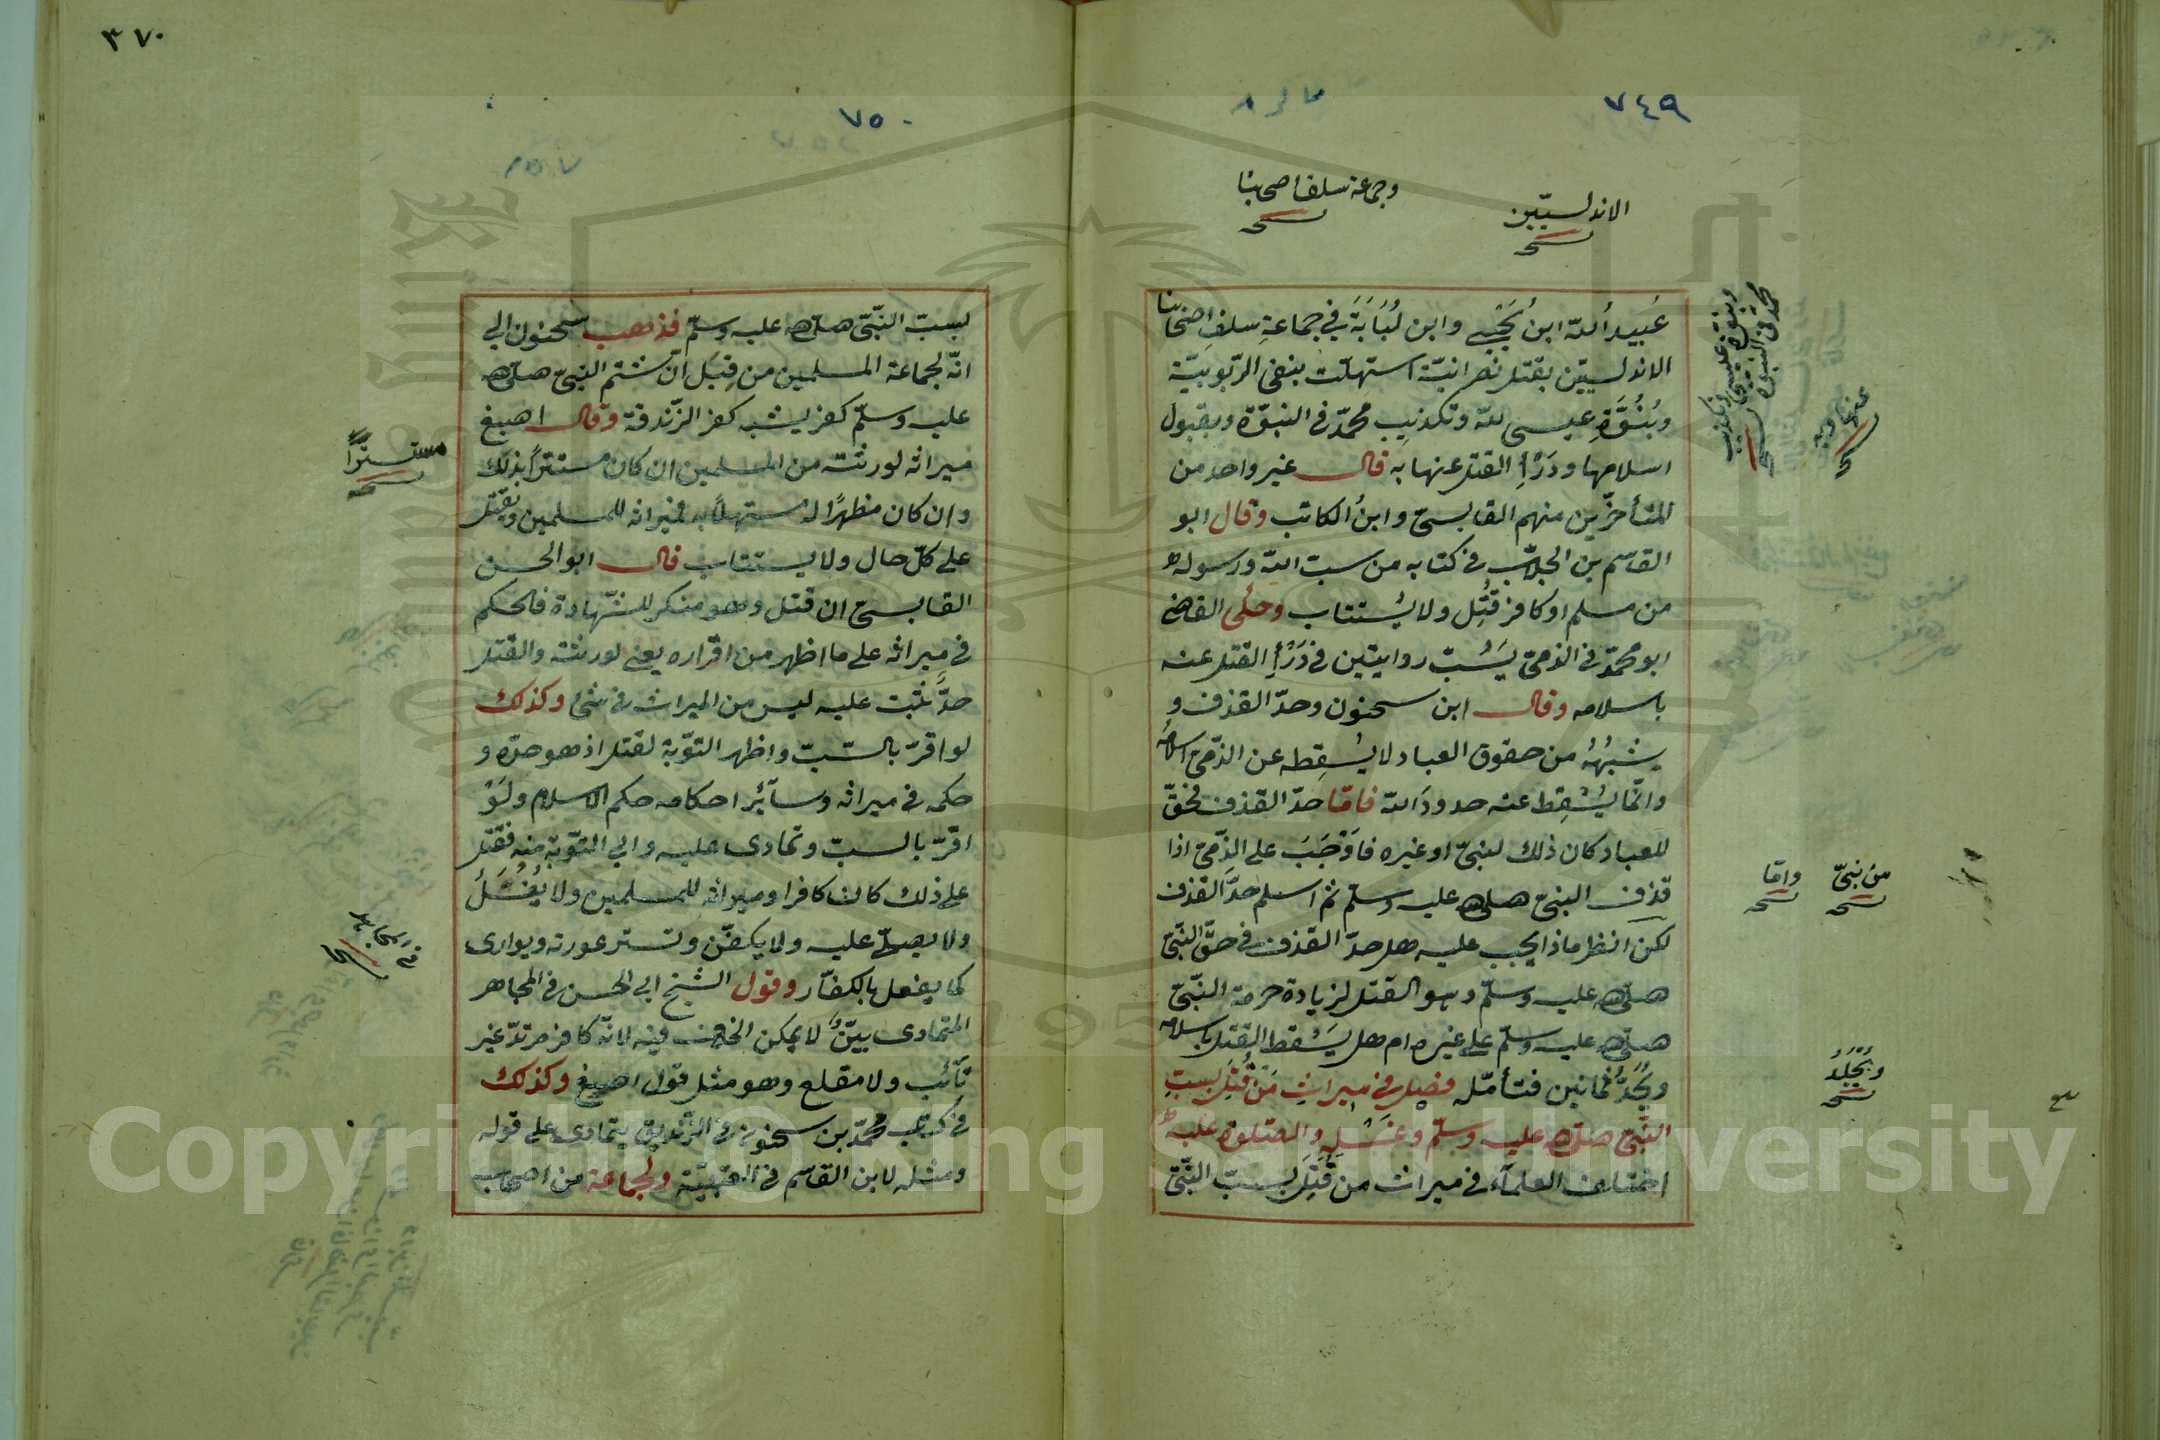 ٧٤٩
الاندلسيّين
نسخه
وجماعة سلف اصحابنا
نسخه
عُبيد الله ابن يحيى وابن لُبَابَة في جماعةِ سلفِ اصحابنا
الاندلسيّين بقتل نصرانيّة استهلّت بنفى الرّبوبيّة
وبُنُوَّةِ عيسى لله وتكذيبِ محمّد فى النبوّة وبقبول
اسلامها ودَرْأِ القتل عنها به قال غير واحد من
المتأخرّين منهم القابسىّ وابنُ الكاتب وقال ابو
القاسم بن الجلاّب فى كتابه من سبّ الله ورسوله
من مسلم اوكافر قُتِل ولا يُستتاب وحكى القاضى
ابو محمّد فى الذمىّ يَسُبّ روايتين فى دَرْأِ القتل عنه
باسلامه وقال ابن سحنون وحدّ القذف و
شبهُهُ من حقوق العباد لا يُسقِطه عن الذمّىّ اسلامُه
وانّما يُسْقِط عنه حدودَ الله فامّا حدّ القذف فحقّ
للعباد كان ذلك لنبىّ او غيره فاَوْجَبَ على الذِّمىّ اذا
قذف النبىّ صلى الله عليه وسلّم ثم اسلم حدَّ القذف
لكن انظر ماذا يجب عليه هل حدّ القذف فى حقّ النبّىّ
صلى الله عليه وسلّم وهو القتل لزيادة حرمة النبّىّ
صلى الله عليه وسلّم على غيره ام هل يَسْقط القتل باسلامه
ويُحَدُّ ثمانين فتأمّله فصل فى ميراثِ مَنْ قُتِلَ بسبِّ
النّبىّ صلى الله عليه وسلّم وغَسْلِهِ والصّلوة عليه
اختلف العلمآء فى ميراث من قُتِلَ بسبّ النّبّىّ
وبنوّة عيسى لله وتكذيب
محمّد فى النبوّة
نسخه
عنها وبه
من نبىّ
نسخه
وامّا
نسخه
ويُجْلَدُ
نسخه
٣٧٠
٧٥٠
بسبّ النّبّى صلى الله عليه وسلّم فذهب سحنون الى
انّه لجماعة المسلمين من قِبَل انّ شتم النبىّ صلى الله
عليه وسلّم كفر يشبه كفر الزّندقة وقال اصبغ
ميراثه لورثته من المسلمين ان كان مستترًا بذلك
وان كان مظهرًا له مستهلًّا به فميراثه للمسلمين ويُقتل
على كلّ حال ولا يستتاب قال ابو الحسن
القابسىّ ان قتل وهو منكر للشّهادة فالحكم
فى ميراثه على ما اظهر من اقراره يعنى لورثته والقتل
حدٌّ ثبت عليه ليس من الميراث فى شئ وكذلك
لو اقرّ بالسّبّ واظهر التّوبة لقتل اذ هو حدّه و
حكمه فى ميراثه وسآئر احكامه حكم الاسلام ولَوْ
اقرّ بالسبّ وتمادى عليه وابى التّوبة منه فقتل
على ذلك كان كافرا وميراثه للمسلمين ولا يُغْسَلُ
ولا يصلّى عليه ولا يكفّن وتستر عورته ويوارى
كما يفعل بالكفّار وقول الشيخ ابى الحسن فى المجاهر
المتمادى بيّنٌ لا يمكن الخلاف فيه لانّه كافر مرتدّ غير
تآئب ولا مقلع وهو مثل قول اصبغ وكذلك
فى كتاب محمّد بن سحنون فى الزّنديق يتمادى على قوله
ومثله لابن القاسم فى العتبيّة ولجماعة من اصحاب
مستسرًّا
نسخه
Copyright © King Saud University
King Saud University
1957